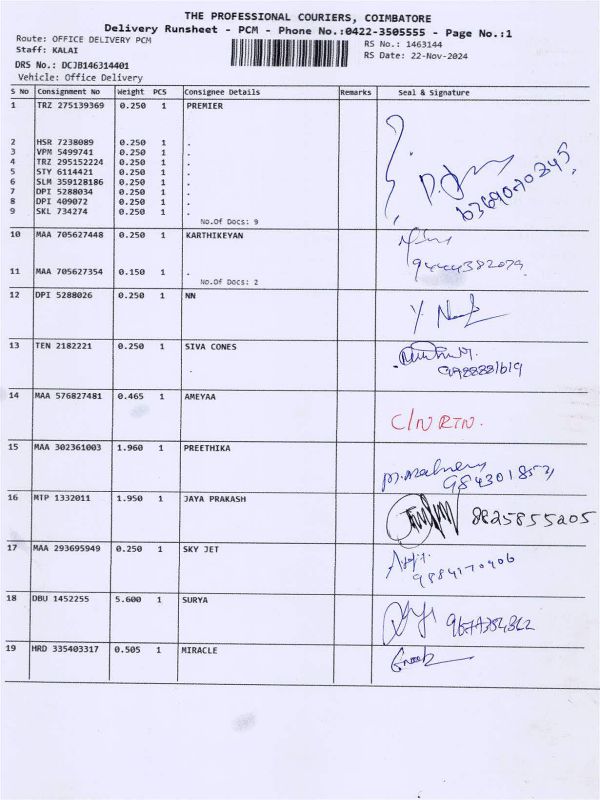 THE PROFESSIONAL COURIERS, COIMBATORE
Delivery Runsheet - PCM - Phone No.:0422-3505555 - Page No.:1
Route: OFFICE DELIVERY PCM
RS No.: 1463144
Staff: KALAI
RS Date: 22-Nov-2024
DRS No.: DCJB146314401
Vehicle: Office Delivery
S No Consignment No Weight PCS Consignee Details Remarks Seal & Signature
1 TRZ 275139369 0.250 1 PREMIER
2 HSR 7238089 0.250 1 .
3 VPM 5499741 0.250 1 .
4 TRZ 295152224 0.250 1 .
5 STY 6114421 0.250 1 .
6 SLM 359128186 0.250 1 .
7 DPI 5288034 0.250 1 .
8 DPI 409072 0.250 1 .
9 SKL 734274 0.250 1 .
No.Of Docs: 9
10 MAA 705627448 0.250 1 KARTHIKEYAN
11 MAA 705627354 0.150 1 .
No.Of Docs: 2
12 DPI 5288026 0.250 1 NN
13 TEN 2182221 0.250 1 SIVA CONES
.
14 MAA 576827481 0.465 1 AMEYAA
C/N RTN.
15 MAA 302361003 1.960 1 PREETHIKA
16 MTP 1332011 1.950 1 JAYA PRAKASH
8825855205
17 MAA 293695949 0.250 1 SKY JET
18 DBU 1452255 5.600 1 SURYA
19 HRD 335403317 0.505 1 MIRACLE